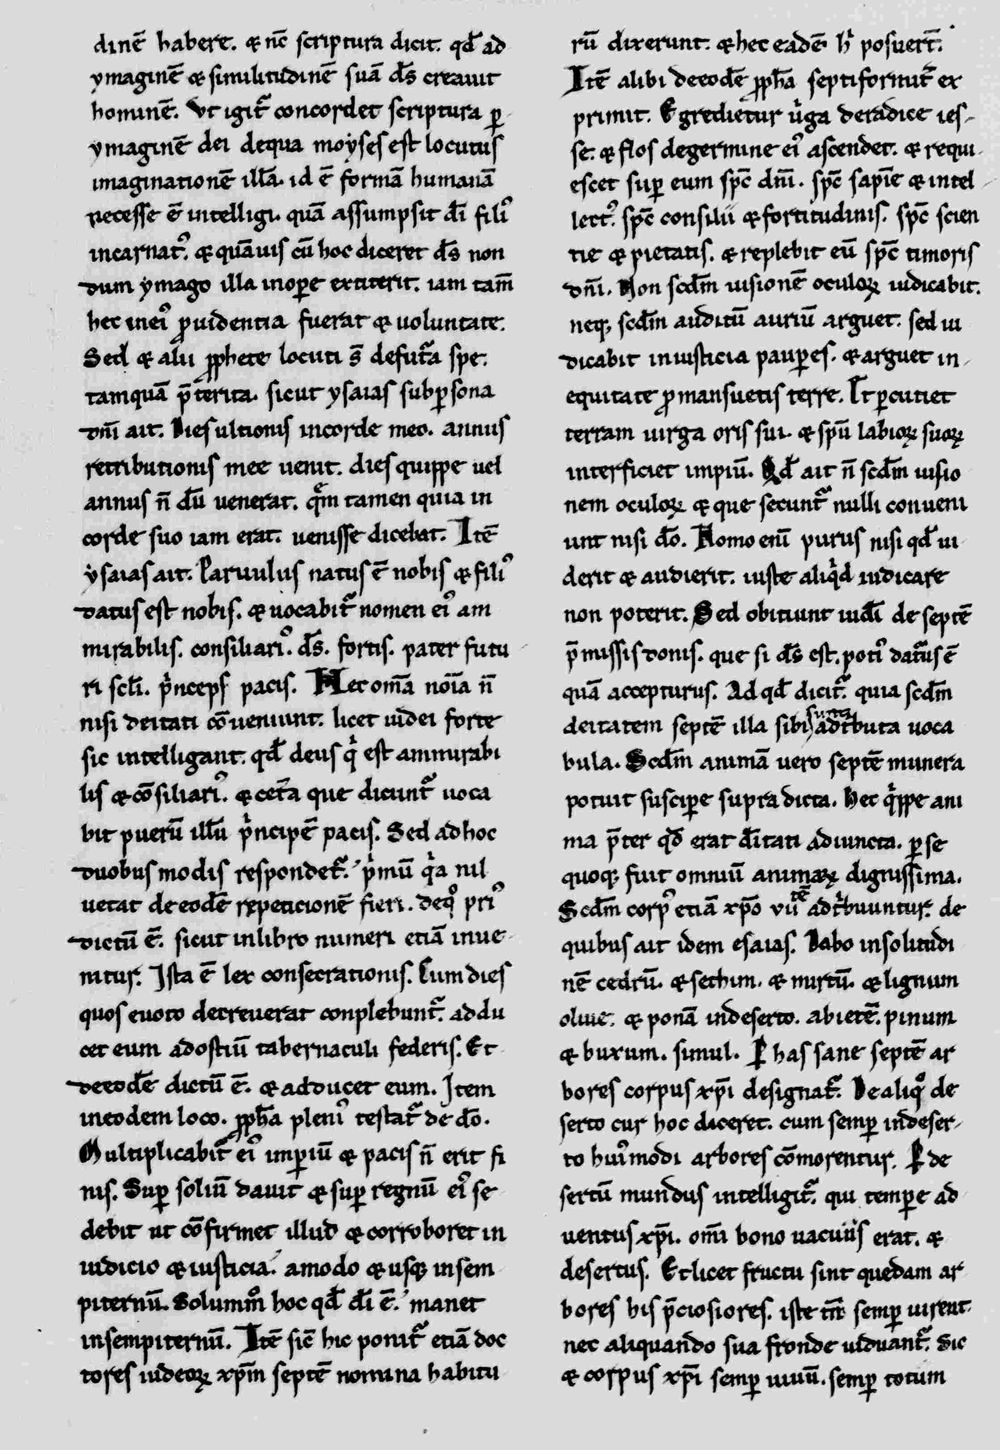 dinē habere. ⁊ nc̄ scriptura dicit. qđ ad
ymaginē ⁊ similitudinē suā d̄s creauit
hominē. Vt igit᷑ concordet scriptura ꝑ
ymaginē dei dequa moyses est locutus
imaginationē illā. id ē formā humanā
necesse ē intelligi. quā assumpsit dī fili᷒
incarnat᷒. ⁊ quāuis cū hoc diceret d̄s non
dum ymago illa inoꝑe extiterit. iam tam̄
hec inei᷒ ꝓuidentia fuerat ⁊ uoluntate.
Sed ⁊ alii ꝓphete locuti s̄ defut᷑a spe.
tamquā p̄terita. sicut ysaias subꝑsona
dn̄i ait. Dies ultionis incorde meo. annus
retributionis mee uenit. dies quippe uel
annus n̄ dū uenerat. qm̄ tamen quia in
corde suo iam erat. uenisse dicebat. Itē
ysaias ait. Paruulus natus ē nobis ⁊ fili᷒
datus est nobis. ⁊ uocabit᷑ nomen ei᷒ am
mirabilis. consiliari᷒. d̄s. fortis. pater futu
ri scl̄i. pⁱnceps pacis. Hec om̄a noīa n̄
nisi deitati cōueniunt. licet iudei forte
sic intelligant. qđ deus qⁱ est ammirabi
lis ⁊ cōsiliari᷒. ⁊ cet᷑a que dicunt᷑ uoca
bit puerū illū pⁱncipē pacis. Sed ad hoc
duobus modis respondet᷑. pⁱmū qⁱa nil
uetat de eodē repeticionē fieri. deqͦ pri᷒
dictū ē. sicut inlibro numeri etiā inue
nitur. Ista ē lex consecrationis. Cum dies
quos euoto decreuerat conplebunt᷑. addu
cet eum adostiū tabernaculi federis. Et
deeodē dictū ē. ⁊ adducet eum. Item
ineodem loco. ꝓph̄a pleni᷒ testat᷑ de dō.
Multiplicabit᷑ ei᷒ imperiū ⁊ pacis n̄ erit fi
nis. Suꝑ soliū dauit ⁊ suꝑ regnū ei᷒ se
debit ut cōfirmet illud ⁊ corroboret in
iudicio ⁊ iusticia. amodo ⁊ usqꝫ insem
piternū. Solummͦ hoc qđ dī ē. manet
insempiternū. Itē sic̄ hic ponit᷑ etiā doc
tores iudeoꝝ xp̄m septē nomina habitu
rū dixerunt. ⁊ hec eadē hⁱ posuer̄t.
Itē alibi deeodē ꝓph̄a septiformit᷑ ex
primit. Egredietur uⁱga deradice ies-
se. ⁊ flos degermine ei᷒ ascendet. ⁊ requi
escet suꝑ eum sp̄c dn̄i. sp̄c sapīe ⁊ intel
lect᷒. sp̄c consilii ⁊ fortitudinis. sp̄c scien
tie ⁊ pietatis. ⁊ replebit eū sp̄c timoris
dn̄i. Non scd̄m uisionē oculoꝝ iudicabit.
neqꝫ scd̄m auditū auriū arguet. sed iu
dicabit iniusticia pauꝑes. ⁊ arguet in-
equitate ꝓ mansuetis terre. Et ꝑcutiet
terram uirga oris sui. ⁊ sp̄u labioꝝ suoꝝ
interficiet impiū. Qđ ait n̄ scd̄m uisio
nem oculoꝝ ⁊ que secunt᷑ nulli conueni
unt nisi dō. Homo enī purus nisi qđ ui
derit ⁊ audierit. iuste aliqⁱd iudicare
non poterit. Sed obitiunt iudī de septē
p̄missis donis. que si d̄s est. poti᷒ dat᷑us ē
quā accepturus. Ad qđ dicit᷑. quia scd̄m
deitatem septē illa sibi sunt adtⁱbuta uoca
bula. Scd̄m animā uero septē munera
potuit susciꝑe supradicta. hec qⁱppe ani
ma p̄ter qđ erat dītati adiuncta. ꝑ se
quoqꝫ fuit omniū animaꝝ dignissima.
Scd̄m corp᷒ etiā xp̄o vii adtⁱbuuntur. de
quibus ait idem esaias. Dabo insolitudi
nē cedrū. ⁊ sethim. ⁊ mirtū. ⁊ lignum
oliue. ⁊ ponā indeserto. abietē. pinum
⁊ buxum. simul. Ꝑ has sane septē ar
bores corpus xp̄i designat᷑. De aliqͦ de
serto cur hoc diceret. cum semꝑ indeser-
to hui᷒modi arbores cōmorentur. Ꝑ de
sertū mundus intelligit᷑. qui tempe ad
uentus xp̄i. om̄i bono uacuus erat. ⁊
desertus. Et licet fructu sint quedam ar
bores his p̄ciosiores. iste tn̄ semꝑ uirent.
nec aliquando sua fronde uiduant᷑. Sic
⁊ corpus xp̄i semꝑ uiuū. semꝑ totum